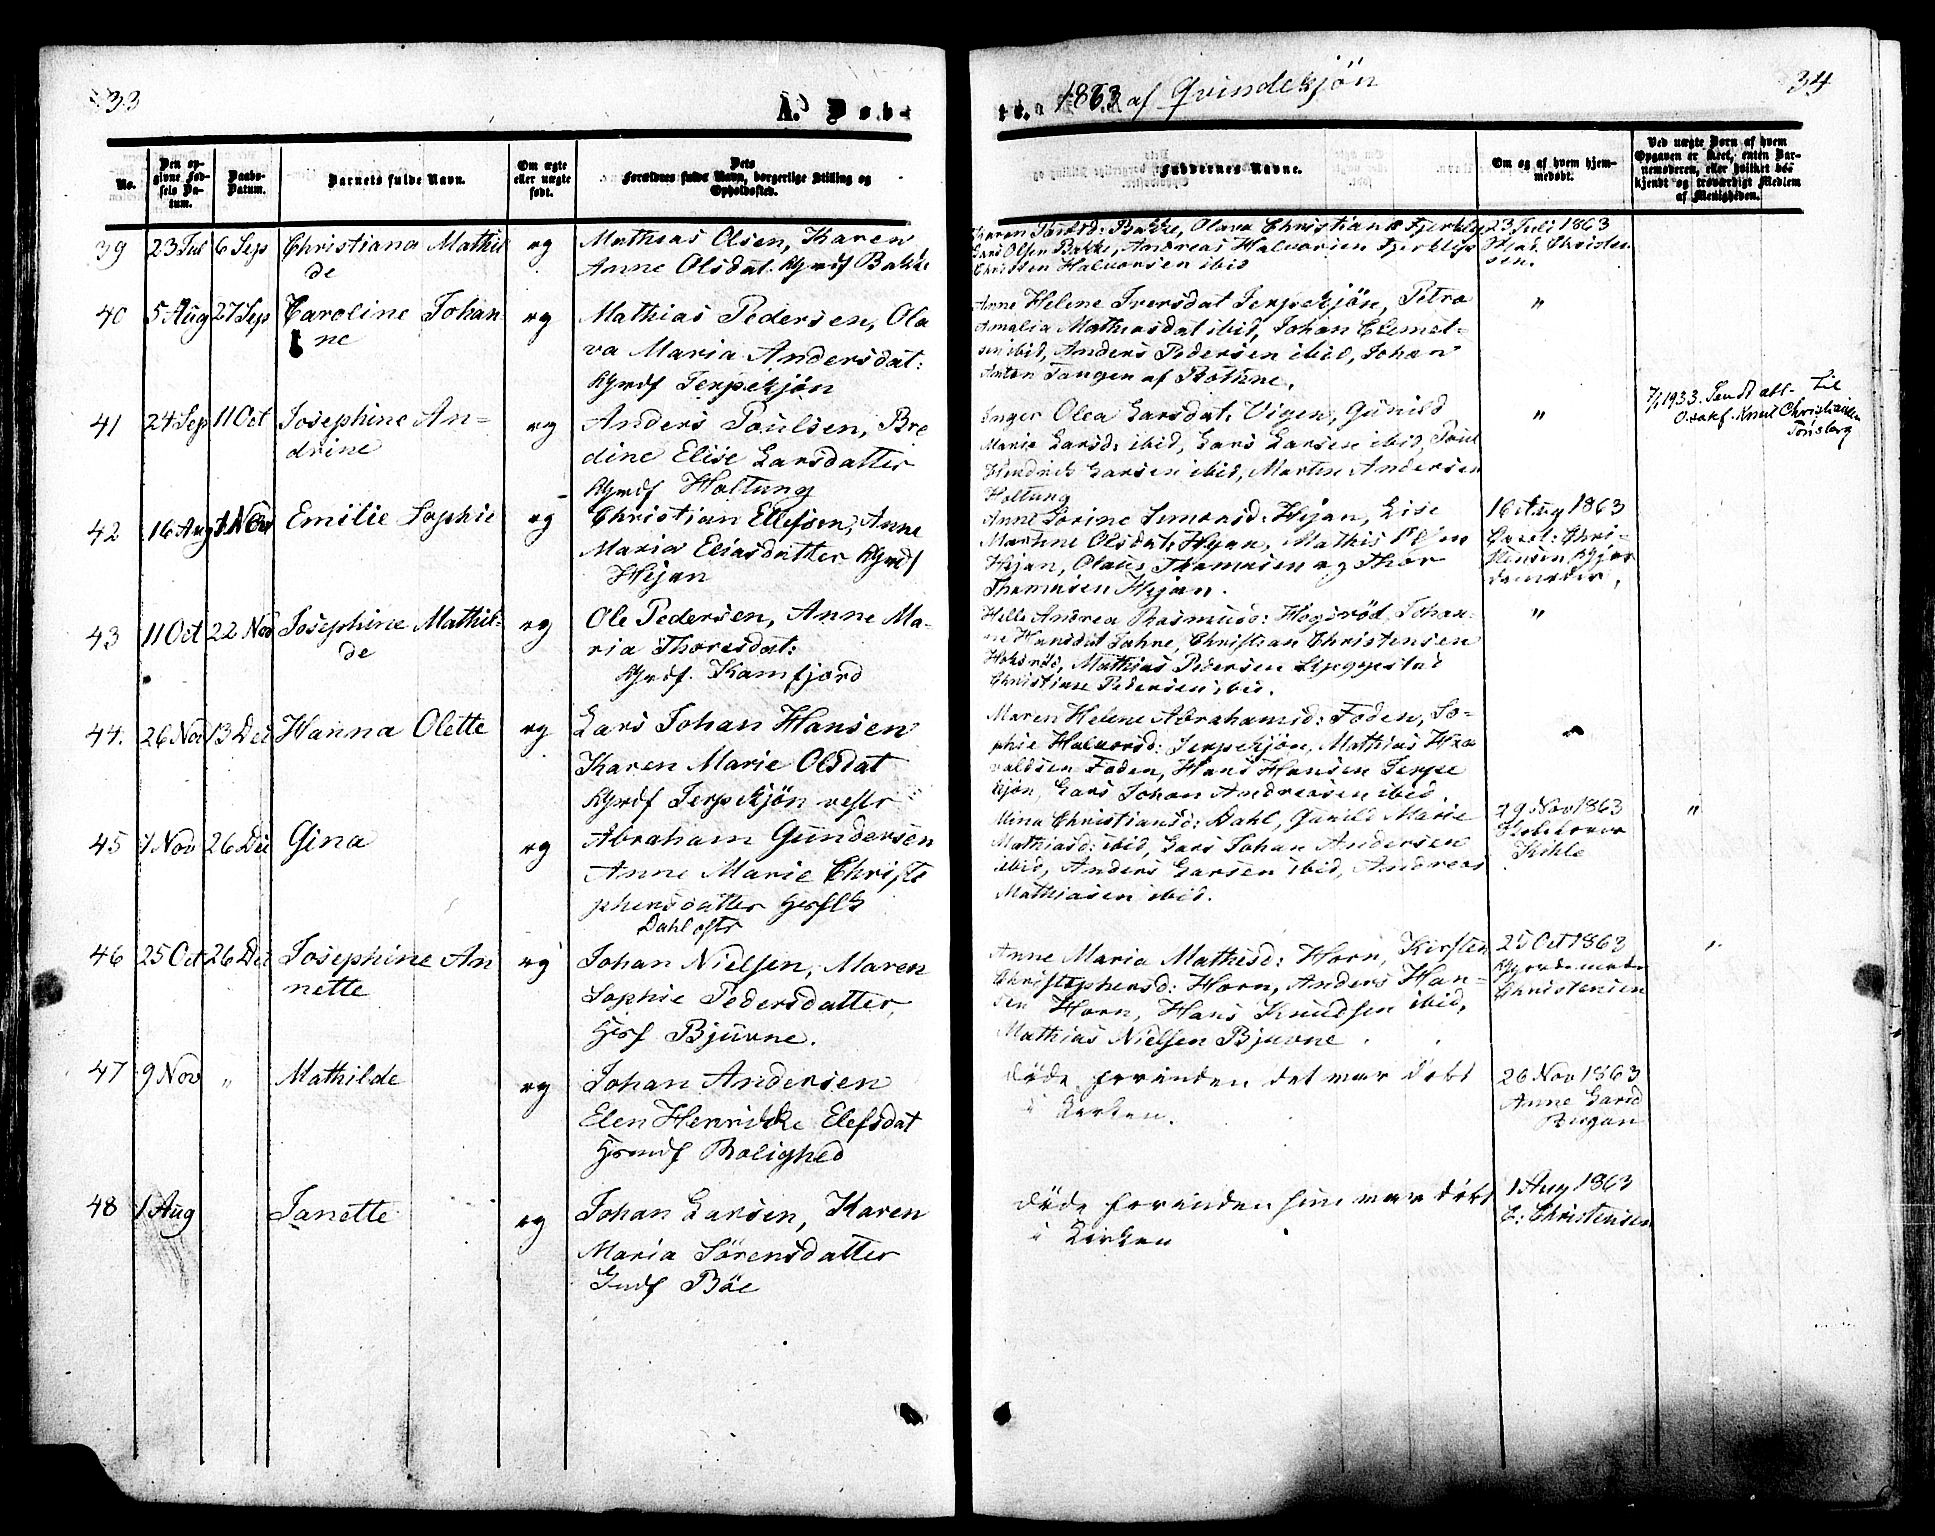 33
A. Døb-
te. 1863 af Qvindekjön
34
No.
Den op-
givne Fød-
sels Da-
tum.
Daabs-
Datum.
Barnets fulde Navn.
Om ægte
eller uægte
født.
Dets
Forældres fulde Navn, borgerlige Stilling og
Opholdssted.
Faddernes Navne.
Om og af hvem hjem-
medøbt.
Ved uægte Børn af hvem
Opgaven er skeet, enten Bar-
nemoderen, eller hvilket bes
kjendt og troværdigt Medlem
af Menigheden.
39 23 Jul 6 Sep Christiana Mathil
de
eg
Mathias Olsen, Karen
Anne Olsdat. Bakke
Bakke, Olava Christiane
Lars Olsen Bakke, Andreas Halvorsen
Christen Halvorsen ibid
23 Juli 1863
Christen
sen.
40 5 Aug 27 Sep Caroline Johan
ne
eg
Mathias Pedersen, Ola
va Maria Andersdat:
Gmdf Jerpekjön
Anne Helene Iversdat Jerpekjön, Petra
Amalia Mathiasdat ibid, Johan Clemet-
sen ibid, Anders Pedersen ibid, Johan
Anton Tangen af Bothne.
"
41 24 Sep 11 Oct Josephine An-
drine
eg
Anders Poulsen, Bre
dine Elise Larsdatter
Gmdf Holtung
Inger Olea Larsdat: Vigen, Gunild
Maria Larsd: ibid, Lars Larsen ibid, Poul
Hendrik Larsen ibid, Martin Andersen
Holtung
"
7/1 1933. Sendt att. til
O.sakf. Knut Christiansen
Tönsberg
42 16 Aug 1 Nov Emilie Sophie
eg
Christian Ellefsen, Anne
Maria Eliasdatter Gmdf
Hejan
Anne Sorine Simonsd: Hejan, Lise
Marthne Olsdat: Hejan, Mathis Olsen
Hejan, Olaus Thomasen og Thor
Thomasen Hejan.
16 Aug 1863
Chri-
stensen, Gjor
demoder,
43 11 Oct 22 Nov Josephine Mathil-
de
eg
Ole Pedersen, Anne Ma-
ria Thoresdat:
Gmdf. Kamfjord
Helle Andrea Rasmusd: Hogsröd, Johan-
ne Hansdat Jahre, Christian Christensen
Hoksröd, Mathias Pedersen Leppestad
Christiane Pedersen ibid.
"
44. 26 Nov 13 Dec Hanna Olette
eg
Lars Johan Hansen
Karen Marie Olsdat
Gmdf Jerpekjön vestr
Maren Helene Abrahamsd: Foden, So-
phie Halvorsd: Jerpekjön, Mathias Hra
valdsen Foden, Hans Hansen Jerpe
kjön, Lars Johan Andreasen ibid.
"
45 1 Nov 26 Dec Gina
eg
Abraham Gundersen
Anne Marie Christo
phersdatter
Dahl östr
Mina Christiansd: Dahl, Gunild Marie
Mathiasd: ibid, Lars Johan Andersen
ibid, Anders Larsen ibid, Andreas
Mathiasen ibid.
29 Nov 1863
Kihle
"
46 25 Oct 26 Dec Josephine An
nette
eg
Johan Nielsen, Maren
Sophie Pedersdatter,
Bjuvne.
Anne Maria Mathisd: Horn, Kirsten
Christophersd: Horn, Anders Han-
sen Horn, Hans Knudsen ibid,
Mathias Nielsen Bjuvne.
25 Oct 1863
Gjordemoder
Christensen
"
47 9 Nov " Mathilde
eg
Johan Andersen
Elen Henrikke Elefsdat
Rolighed
Döde forinden det var döbt
i Kirken.
26 Nov 1863
Anne Larsd
48 1 Aug Janette
eg
Johan Larsen, Karen
Maria Sörensdatter
Böe
Döde forinden hun var döbt
i Kirken
1 Aug 1863
C: Christensen